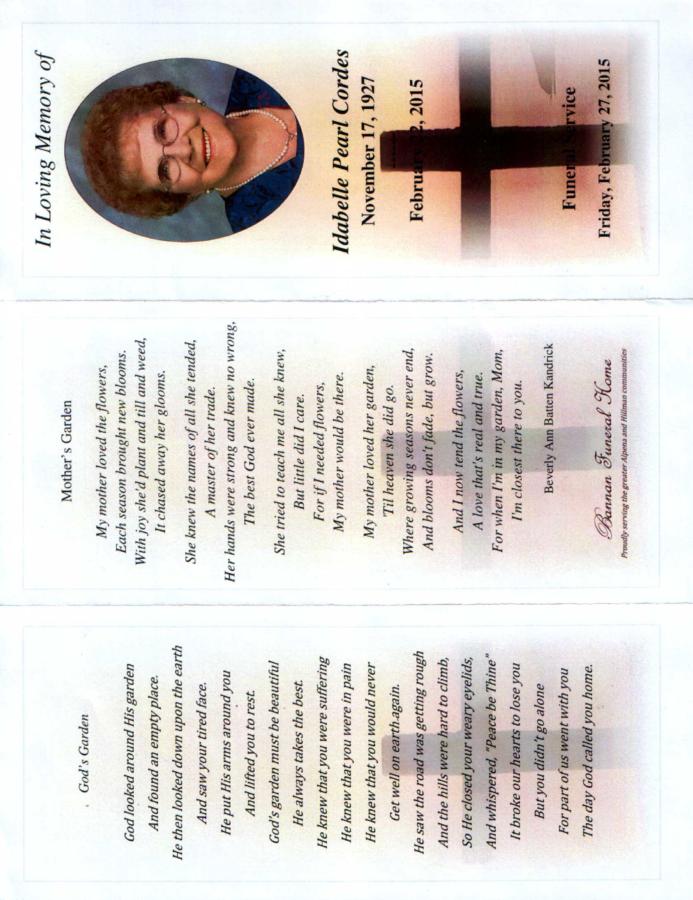 God's Garden
God looked around His garden
And found an empty place.
He then looked down upon the earth
And saw your tired face.
He put His arms around you
And lifted you to rest.
God's garden must be beautiful
He always takes the best.
He knew that you were suffering
He knew that you were in pain
He knew that you would never
Get well on earth again.
He saw the road was getting rough
And the hills were hard to climb,
So He closed your weary eyelids,
And whispered, "Peace be Thine"
It broke our hearts to lose you
But you didn't go alone
For part of us went with you
The day God called you home.
Mother's Garden
My mother loved the flowers,
Each season brought new blooms.
With joy she'd plant and till and weed,
It chased away her glooms.
She knew the names of all she tended,
A master of her trade.
Her hands were strong and knew no wrong,
The best God ever made.
She tried to teach me all she knew,
But little did I care.
For if I needed flowers,
My mother would be there.
My mother loved her garden,
'Til heaven she did go.
Where growing seasons never end,
And blooms don't fade, but grow.
And I now tend the flowers,
A love that's real and true.
For when I'm in my garden, Mom,
I'm closest there to you.
Beverly Ann Batten Kandrick
Bannan Funeral Home
Proudly serving the greater Alpena and Hillman communities
In Loving Memory of
Idabelle Pearl Cordes
November 17, 1927
February 2015
Funeral Service
Friday, February 27, 2015